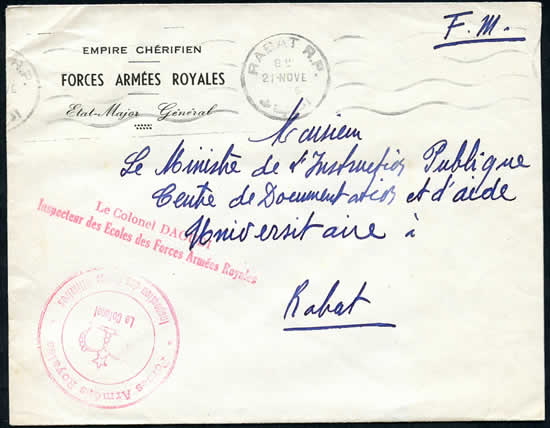 F. M.
EMPIRE CHÉRIFIEN
FORCES ARMÉES ROYALES
Etat-Major Général
RABAT R.P.
21-NOVE
R.P.
Monsieur
Le Ministre de l'Instruction Publique
Centre de Documentation et d'aide
Universitaire à
Rabat
Le Colonel
Inspecteur des Ecoles des Forces Armées Royales
Le Colonel
Forces Armées Royales